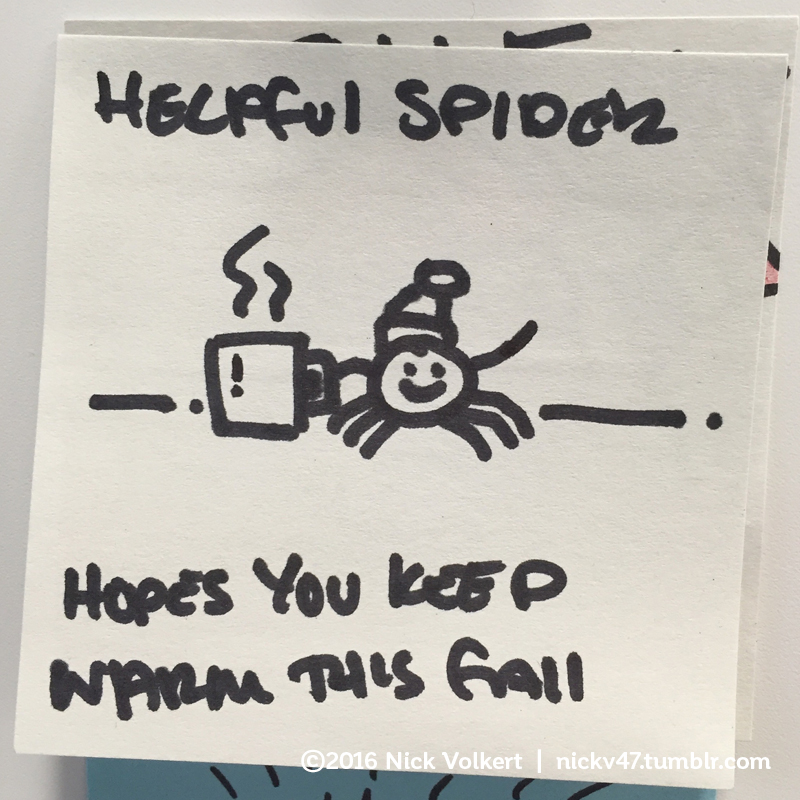 HELPFUL SPIDER
!
HOPES YOU KEEP
WARM THIS FALL
©2016 Nick Volkert | nickv47.tumblr.com